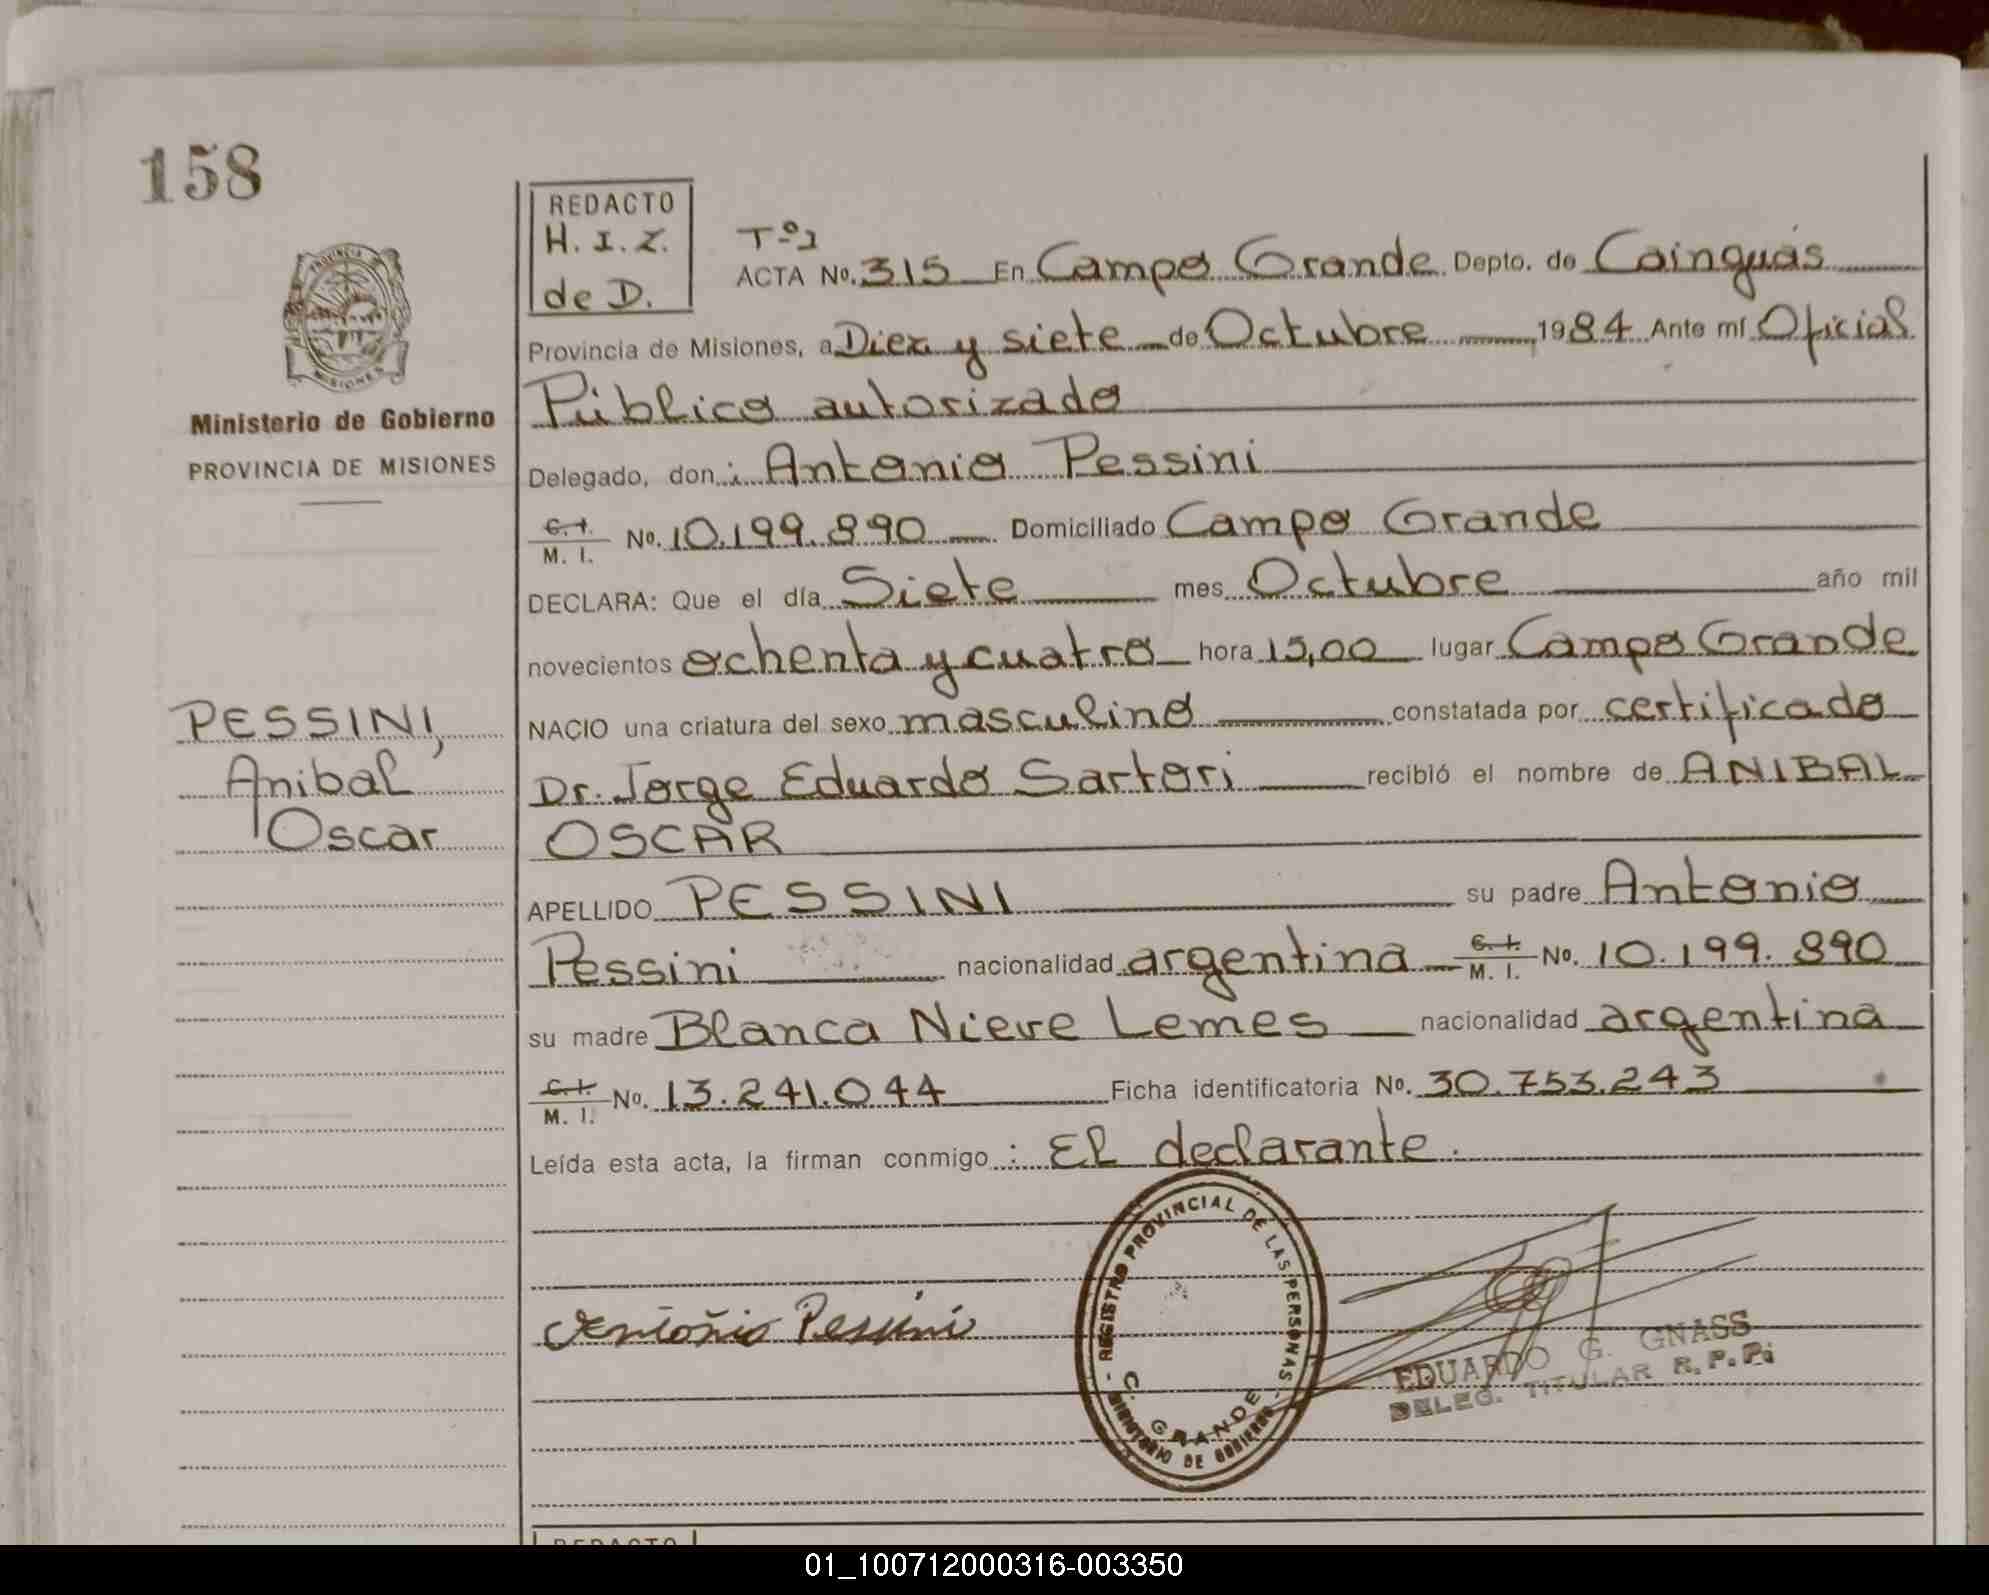 158
PROVINCIA DE
MISIONES
Ministerio de Gobierno
PROVINCIA DE MISIONES
PESSINI,
Anibal
Oscar
REDACTO
H. I. Z.
de D.
Tº1
ACTA No. 315 En Campo Grande Depto. de Cainguás
Provincia de Misiones, a Diez y siete de Octubre 1984 Ante mí Oficial
Público autorizado
Delegado, don: Antonio Pessini
C. I.
M. I. No. 10.199.890 Domiciliado Campo Grande
DECLARA: Que el día Siete mes Octubre año mil
novecientos ochenta y cuatro hora 15,00 lugar Campo Grande
NACIO una criatura del sexo masculino constatada por certificado
Dr. Jorge Eduardo Sartori recibió el nombre de ANIBAL
OSCAR
APELLIDO PESSINI su padre Antonio
Pessini nacionalidad argentina C. I. M. I. No. 10.199.890
su madre Blanca Nieve Lemes nacionalidad argentina
C. I.
M. I. No. 13.241.044 Ficha identificatoria No. 30.753.243
Leída esta acta, la firman conmigo: El declarante.
REGISTRO PROVINCIAL DE LAS PERSONAS
C. GRANDE
MINISTERIO DE GOBIERNO
Antonio Pessini
EDUARDO G. GNASS
DELEG. TITULAR R. P. P.
REDACTO
01_100712000316-003350